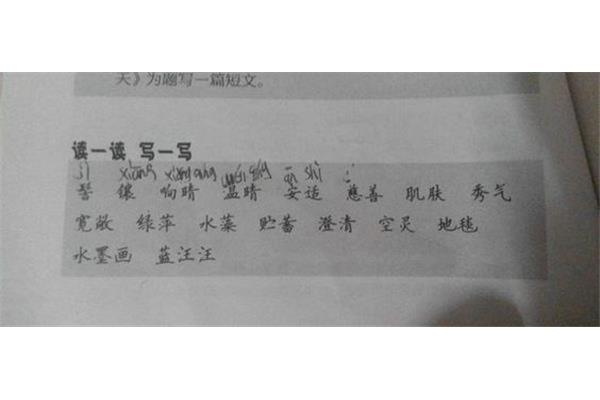 天》为题写一篇短文。
读一读 写一写
xiāng ān shì
髻 镶 响晴 温晴 安适 慈善 肌肤 秀气
宽敞 绿萍 水藻 贮蓄 澄清 空灵 地毯
水墨画 蓝汪汪